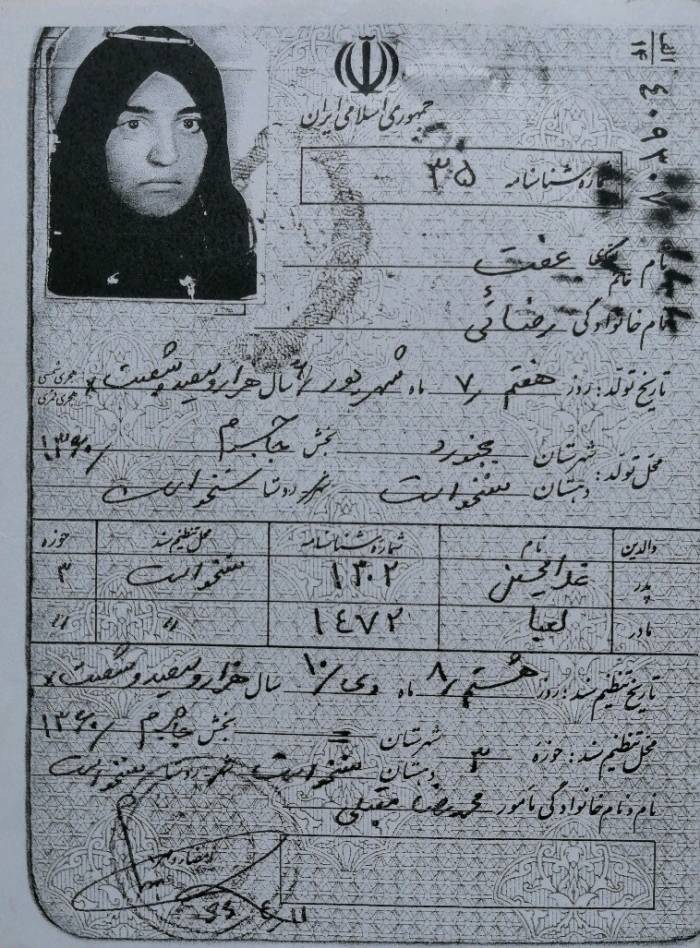 الف
۱۴
۴۰۹۳۰۷
جمهوری اسلامی ایران
شماره شناسنامه ۳۵
نام عفت
نام خانوادگی رضائی
تاریخ تولد: روز هفتم /۷ ماه شهریور /۶ سال هزار و سیصد و شصت × هجری شمسی هجری قمری
محل تولد: شهرستان بجنورد بخش جاجرم /۱۳۶۰
دهستان سنخواست شهر روستا سنخواست
والدین نام شماره شناسنامه محل تنظیم سند حوزه
پدر غلامحسین ۱۳۰۲ سنخواست ۳
مادر لعیا ۱۴۷۲ " "
تاریخ تنظیم سند: روز هشتم /۸ ماه دی /۱۰ سال هزار و سیصد و شصت ×
محل تنظیم سند: حوزه ۳ شهرستان = بخش جاجرم /۱۳۶۰
دهستان سنخواست شهر روستا سنخواست
نام و نام خانوادگی مأمور محمدرضا مقبلی